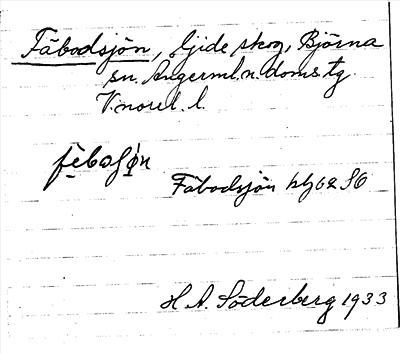 Fäbodsjön, Gideå skog, Björna
sn. Ångerml. n. doms. tg.
V.norrl. l.
fèbosjö́n
Fäbodsjön htg 62 SO
H. A. Söderberg 1933